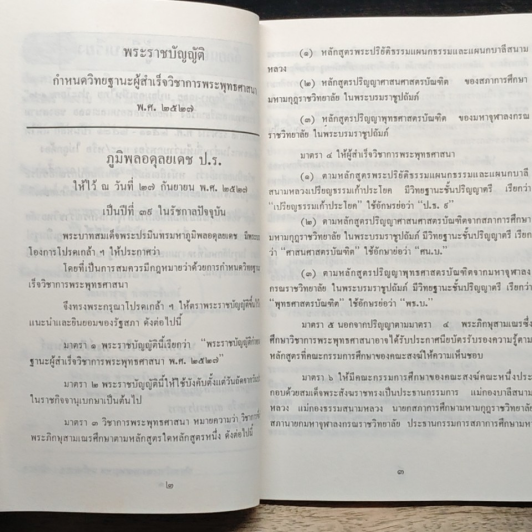 พระราชบัญญัติ
กำหนดวิทยฐานะผู้สำเร็จวิชาการพระพุทธศาสนา
พ.ศ. ๒๕๒๗
ภูมิพลอดุลยเดช ป.ร.
ให้ไว้ ณ วันที่ ๒๗ กันยายน พ.ศ. ๒๕๒๗
เป็นปีที่ ๓๙ ในรัชกาลปัจจุบัน
พระบาทสมเด็จพระปรมินทรมหาภูมิพลอดุลยเดช มีพระบรม
โองการโปรดเกล้า ฯ ให้ประกาศว่า
โดยที่เป็นการสมควรมีกฎหมายว่าด้วยการกำหนดวิทยฐานะ
เร็จวิชาการพระพุทธศาสนา
จึงทรงพระกรุณาโปรดเกล้า ฯ ให้ตราพระราชบัญญัติขึ้นไว้
แนะนำและยินยอมของรัฐสภา ดังต่อไปนี้
มาตรา ๑ พระราชบัญญัตินี้เรียกว่า "พระราชบัญญัติกำหนด
ฐานะผู้สำเร็จวิชาการพระพุทธศาสนา พ.ศ. ๒๕๒๗"
มาตรา ๒ พระราชบัญญัตินี้ให้ใช้บังคับตั้งแต่วันถัดจากวัน
ในราชกิจจานุเบกษาเป็นต้นไป
มาตรา ๓ วิชาการพระพุทธศาสนา หมายความว่า วิชาการ
พระภิกษุสามเณรศึกษาตามหลักสูตรใดหลักสูตรหนึ่ง ดังต่อไปนี้
๒
(๑) หลักสูตรพระปริยัติธรรมแผนกธรรมและแผนกบาลีสนาม
หลวง
(๒) หลักสูตรปริญญาศาสนศาสตรบัณฑิต ของสภาการศึกษา
มหามกุฏราชวิทยาลัย ในพระบรมราชูปถัมภ์
(๓) หลักสูตรปริญญาพุทธศาสตรบัณฑิต ของมหาจุฬาลงกรณ
ราชวิทยาลัย ในพระบรมราชูปถัมภ์
มาตรา ๔ ให้ผู้สำเร็จวิชาการพระพุทธศาสนา
(๑) ตามหลักสูตรพระปริยัติธรรมแผนกธรรมและแผนกบาลี
สนามหลวงเปรียญธรรมเก้าประโยค มีวิทยฐานะชั้นปริญญาตรี เรียกว่า
"เปรียญธรรมเก้าประโยค" ใช้อักษรย่อว่า "ป.ธ. ๙"
(๒) ตามหลักสูตรปริญญาศาสนศาสตรบัณฑิตจากสภาการศึกษา
มหามกุฏราชวิทยาลัย ในพระบรมราชูปถัมภ์ มีวิทยฐานะชั้นปริญญาตรี เรียก
ว่า "ศาสนศาสตรบัณฑิต" ใช้อักษรย่อว่า "ศน.บ."
(๓) ตามหลักสูตรปริญญาพุทธศาสตรบัณฑิตจากมหาจุฬาลง
กรณราชวิทยาลัย ในพระบรมราชูปถัมภ์ มีวิทยฐานะชั้นปริญญาตรี เรียกว่า
"พุทธศาสตรบัณฑิต" ใช้อักษรย่อว่า "พธ.บ."
มาตรา ๕ นอกจากปริญญาตามมาตรา ๔ พระภิกษุสามเณรซึ่ง
ศึกษาวิชาการพระพุทธศาสนาอาจได้รับประกาศนียบัตรรับรองความรู้ตาม
หลักสูตรที่คณะกรรมการการศึกษาของคณะสงฆ์ให้ความเห็นชอบ
มาตรา ๖ ให้มีคณะกรรมการการศึกษาของคณะสงฆ์คณะหนึ่งประ
กอบด้วยสมเด็จพระสังฆราชทรงเป็นประธานกรรมการ แม่กองบาลีสนาม
หลวง แม่กองธรรมสนามหลวง นายกสภาการศึกษามหามกุฏราชวิทยาลัย
สภานายกมหาจุฬาลงกรณราชวิทยาลัย ประธานกรรมการสภาการศึกษามหา
๓